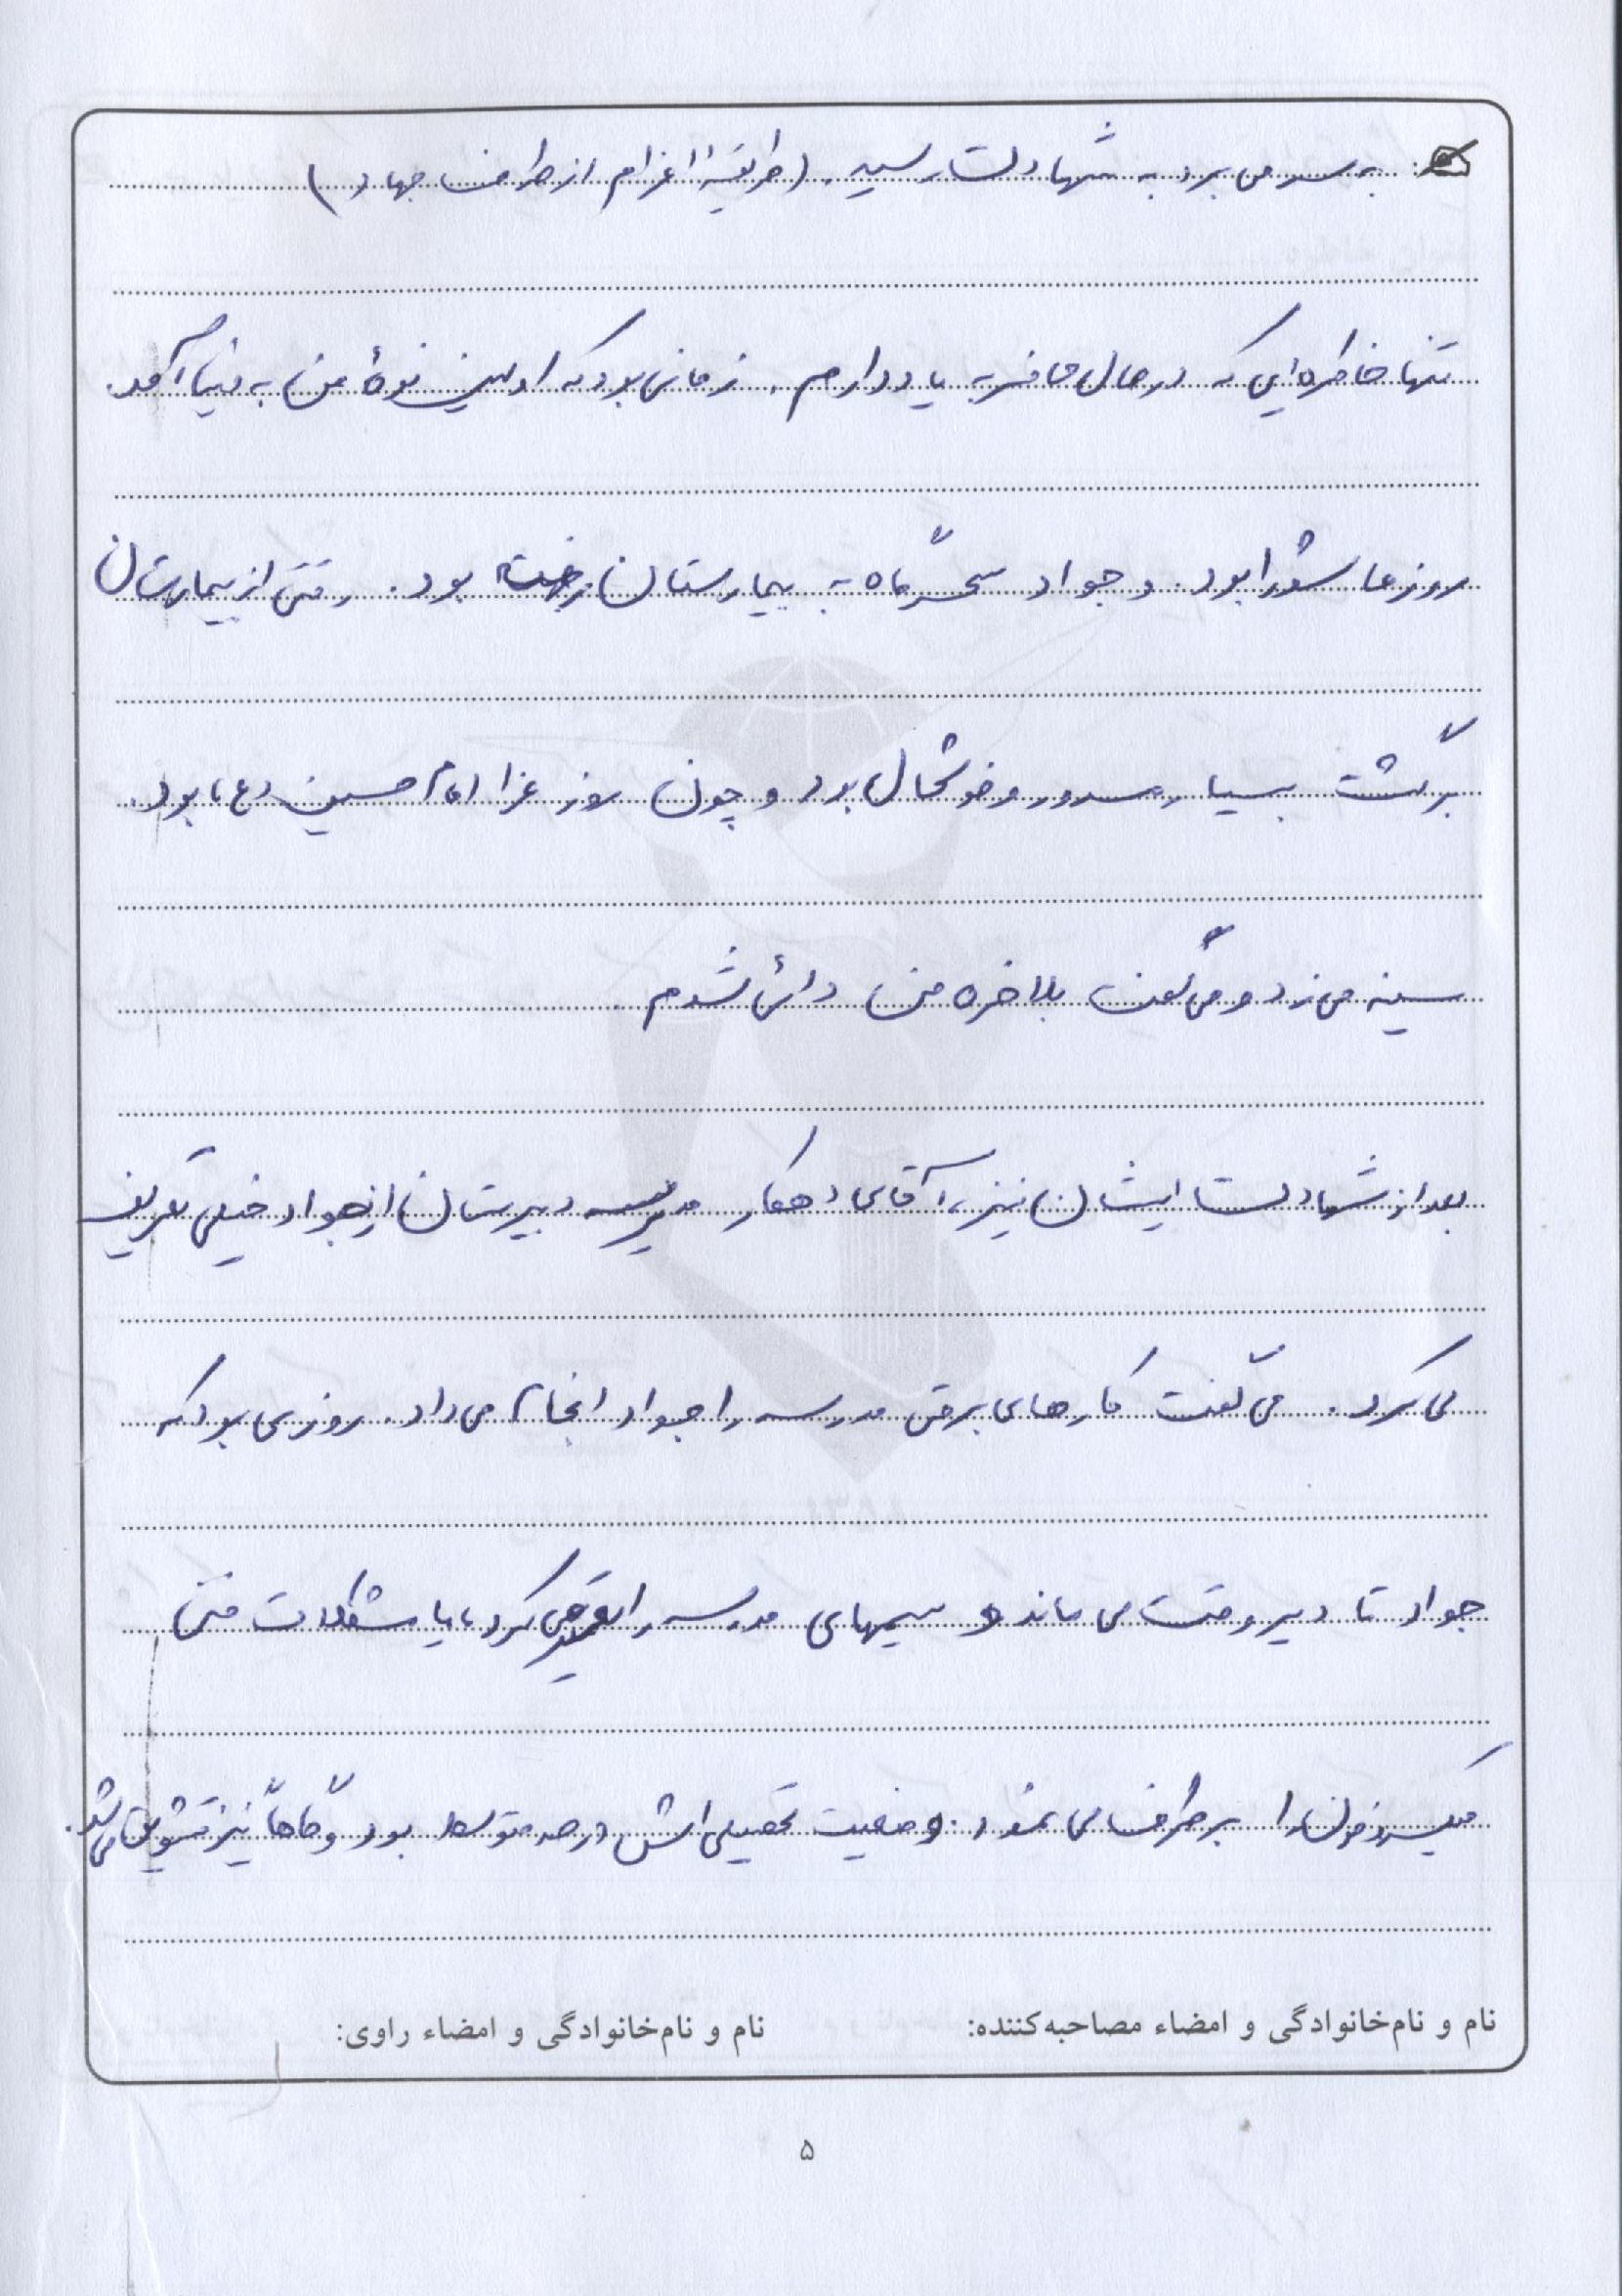 به سر می برد به شهادت رسید. (طریقۀ اعزام از طرف جهاد)
تنها خاطره ایی که در حال حاضر به یاد دارم، زمانی بود که اولین نوۀ من به دنیا آمد.
روز عاشورا بود. و جواد سحرگاه به بیمارستان رفته بود. وقتی از بیمارستان
برگشت بسیار مسرور و خوشحال بود و چون روز عزا امام حسین (ع) بود.
سینه می زد و می گفت بلاخره من دائی شدم.
بعد از شهادت ایشان نیز، آقای دهکار مدیر دبیرستان از جواد خیلی تعریف
می کرد. می گفت کارهای برقی مدرسه را جواد انجام می داد. روزی بود که
جواد تا دیر وقت می ماند و سیمهای مدرسه را تعمیر می کرد، یا مشکلات فنی
میکروفون را بر طرف می نمود. وضعیت تحصیلی اش در حد متوسط بود و گاهاً نیز تشویق می شد.
نام و نام‌خانوادگی و امضاء مصاحبه‌کننده: نام و نام‌خانوادگی و امضاء راوی:
۵